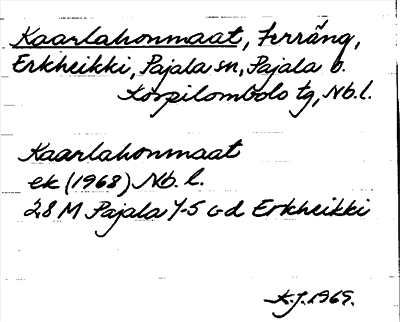 Kaarlahonmaat, terräng,
Erkheikki, Pajala sn, Pajala o.
Korpilombolo tg, Nb. l.
Kaarlahonmaat
ek (1968) Nb. l.
28 M Pajala 7-5 c-d Erkheikki
K.J. 1969.